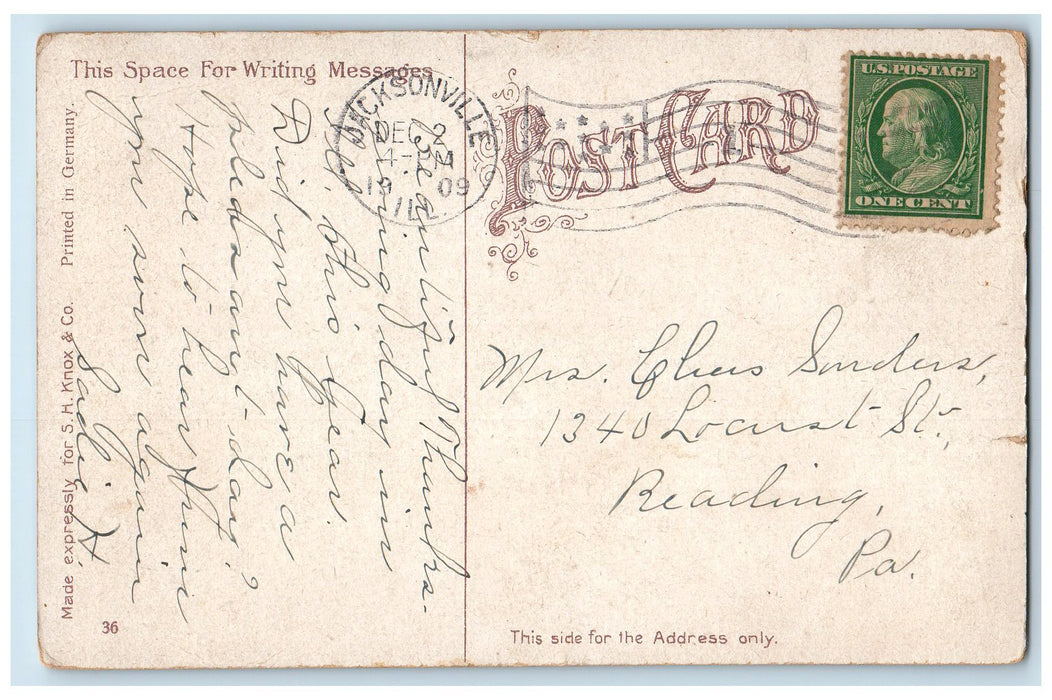 This Space For Writing Messages
Beautiful Thanks-
giving day in
Ill. this Year.
Did you have a
pleasant day?
Hope to hear from
you soon again
Sadie H.
Made expressly for S. H. Knox & Co. Printed in Germany.
36
JACKSONVILLE
DEC 2
1909
ILL.
POST CARD
U.S. POSTAGE
ONE CENT
Mrs. Chas Sonders,
1340 Locust St.,
Reading,
Pa.
This side for the Address only.